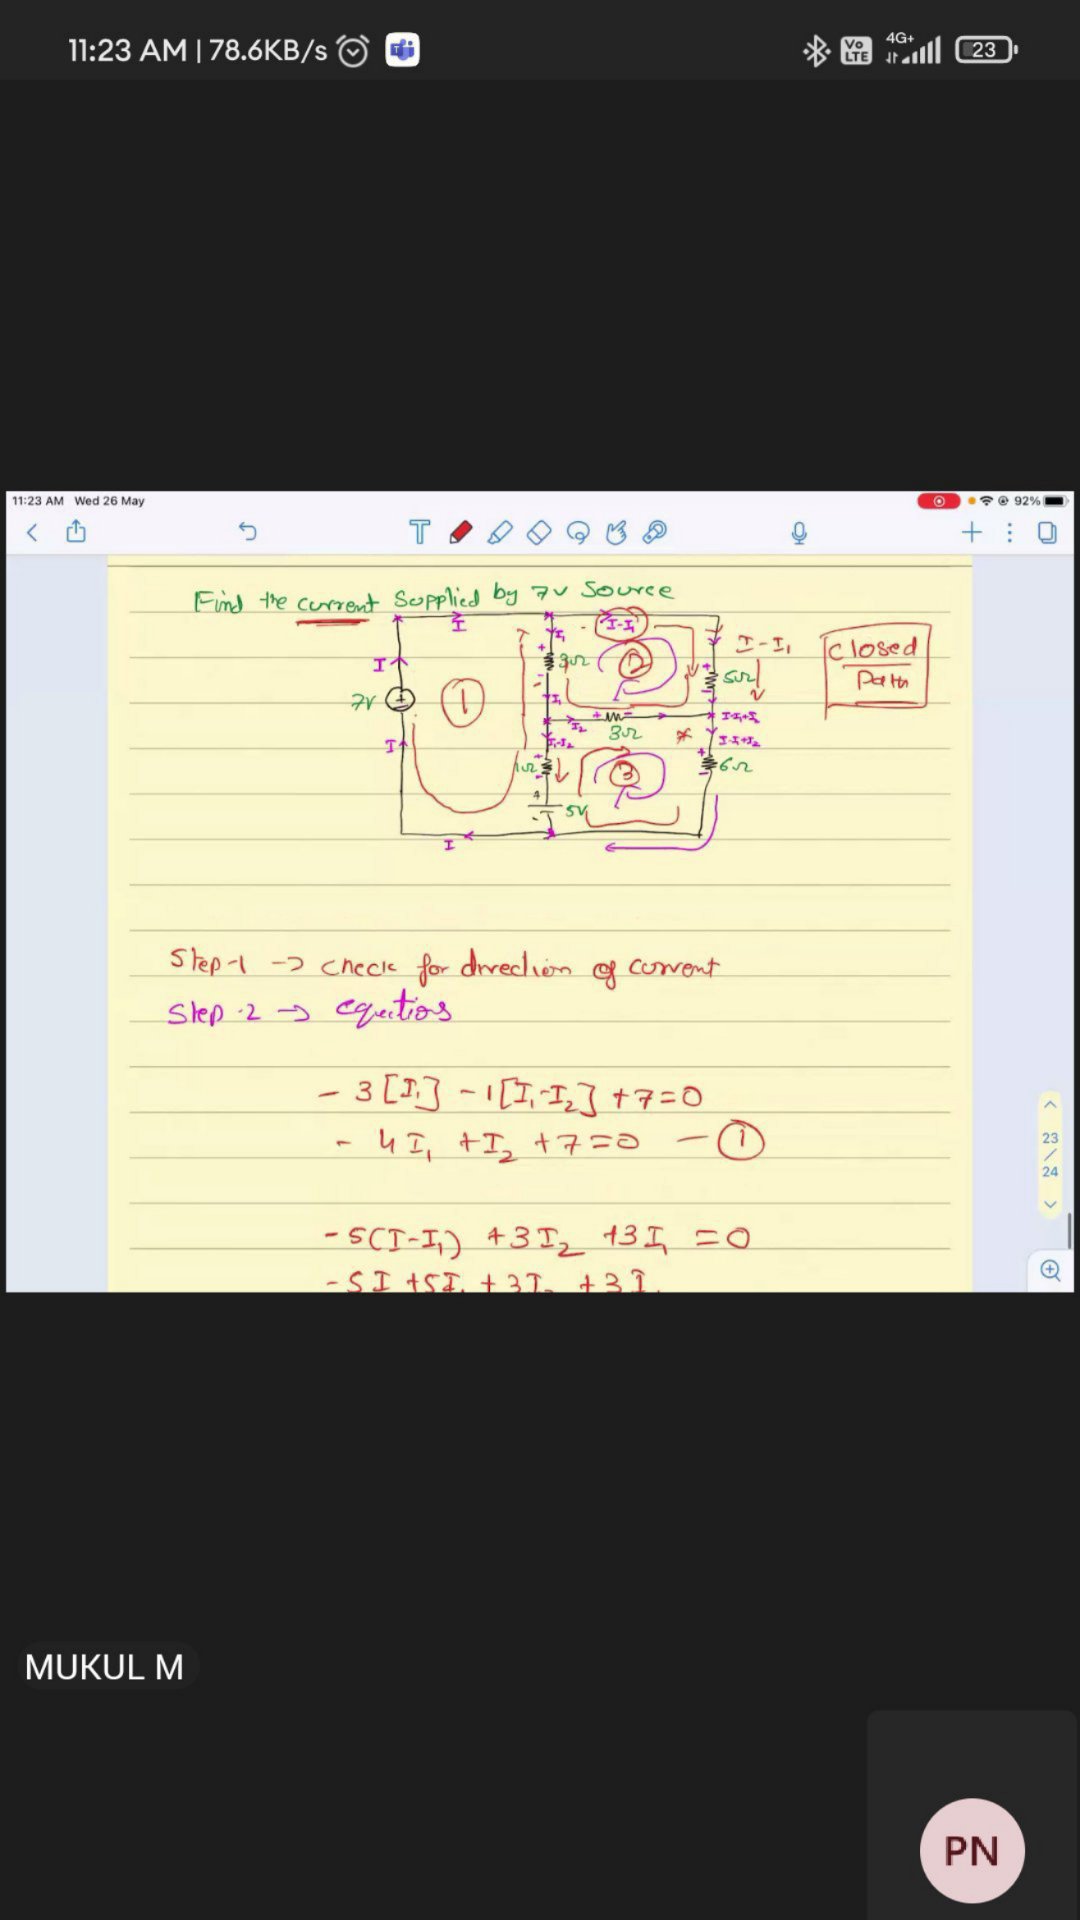 11:23 AM | 78.6KB/s
Vo LTE 4G+ 23
11:23 AM Wed 26 May
92%
T
Find the current supplied by 7V Source
I
I
7V
I
I
1
I₁
3Ω
I₁
I-I₁
2
I-I₁
5Ω
closed
Path
I₂
3Ω
*
I-I₁+I₂
I₁-I₂
I-I₁+I₂
1Ω
5V
3
6Ω
Step-1 → check for direction of current
Step-2 → equations
- 3[I₁] - 1[I₁-I₂] + 7 = 0
- 4I₁ + I₂ + 7 = 0 - ①
23
/
24
- 5(I-I₁) + 3I₂ + 3I₁ = 0
- 5I + 5I₁ + 3I₂ + 3I₁
MUKUL M
PN